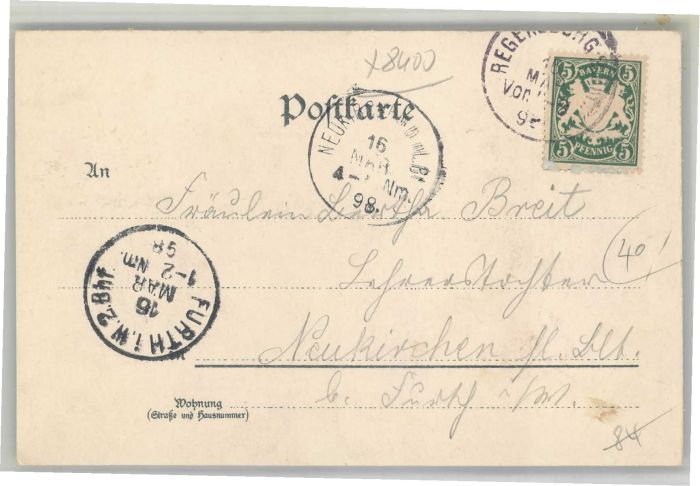 x8400
REGENSBURG
MÄR
Vor.
98
5 BAYERN 5
5 PFENNIG 5
Postkarte
NEUKIRCHEN b. hl. Bl.
16
MAR
4- Nm.
98.
An
Fräulein Bertha Breit
Lehrerstochter
40
Neukirchen hl. Blt.
b. Furth i/W.
FURTH i. W. 2. Bhf.
15
MAR
1-2 Nm.
98
Wohnung
(Straße und Hausnummer)
84